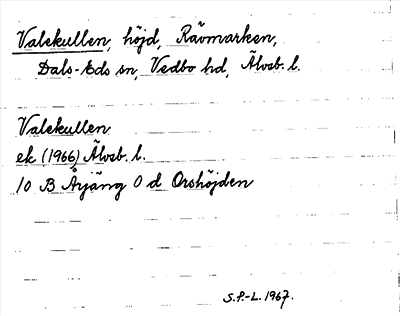 Valekullen, höjd, Rävmarken,
Dals-Eds sn, Vedbo hd, Älvsb. l.
Valekullen
ek (1966) Älvsb. l.
10 B Årjäng 0 d Orshöjden
S.P.-L. 1967.